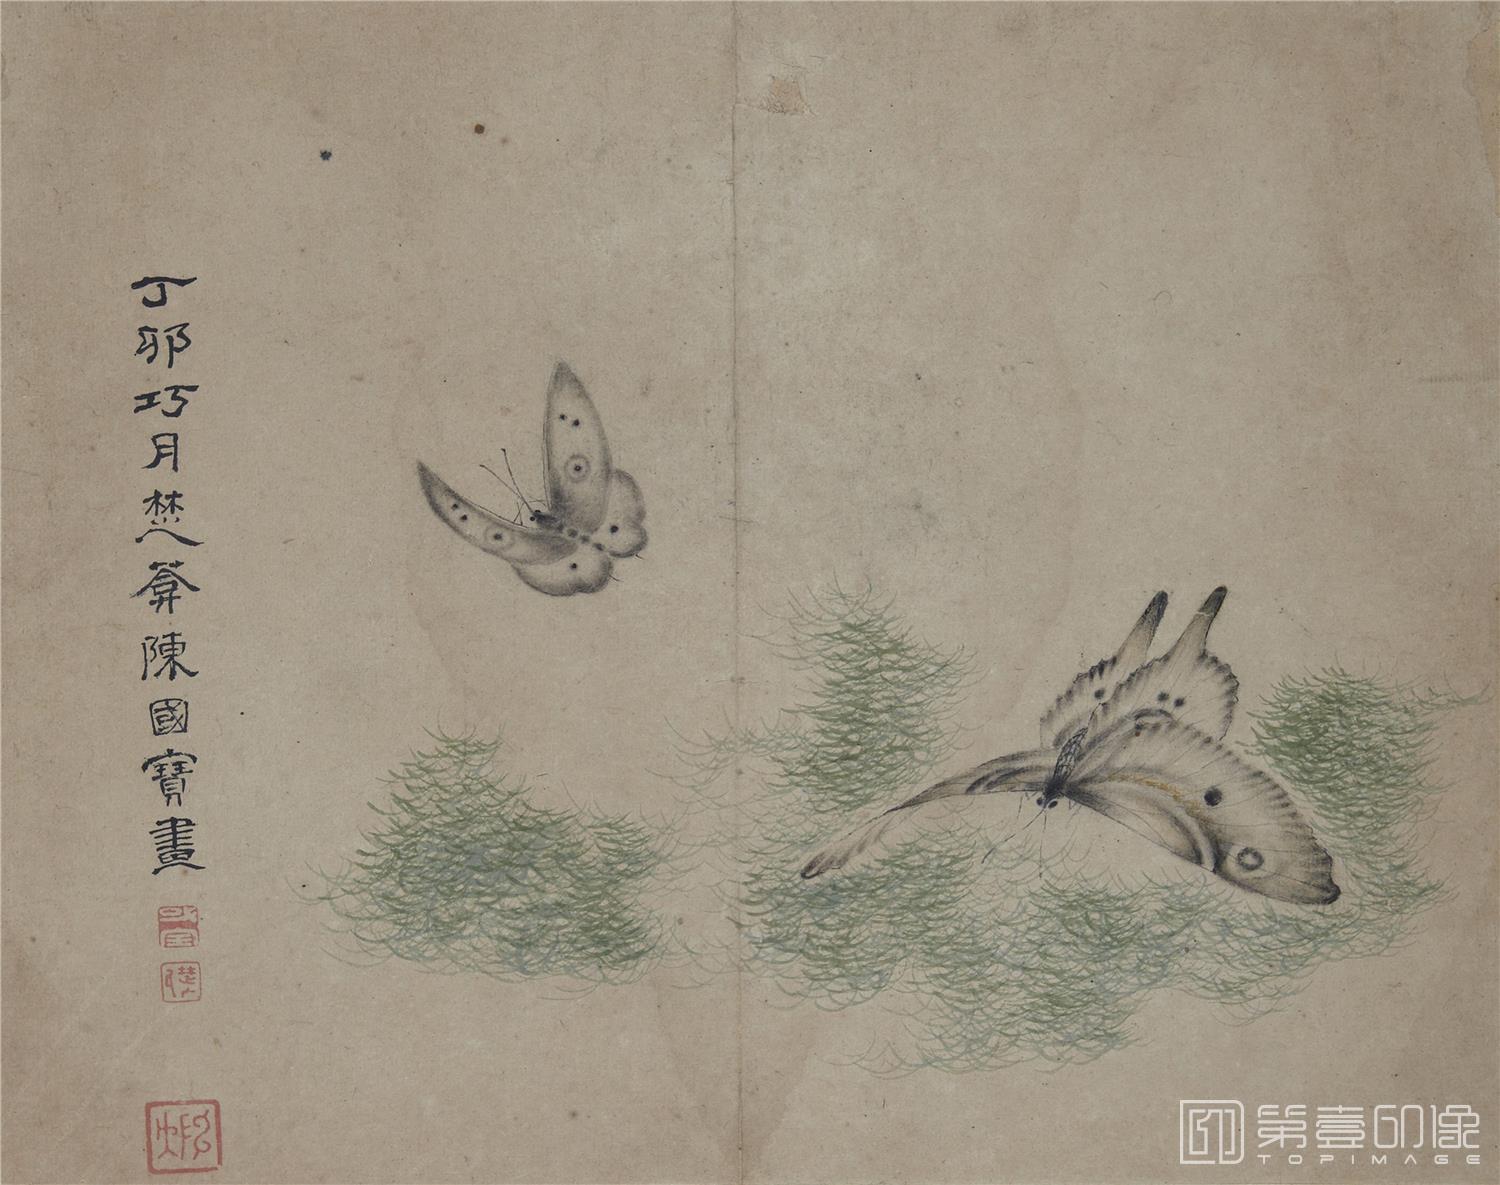 丁卯巧月楚箖陳國寶畫
第壹印像
TOPIMAGE